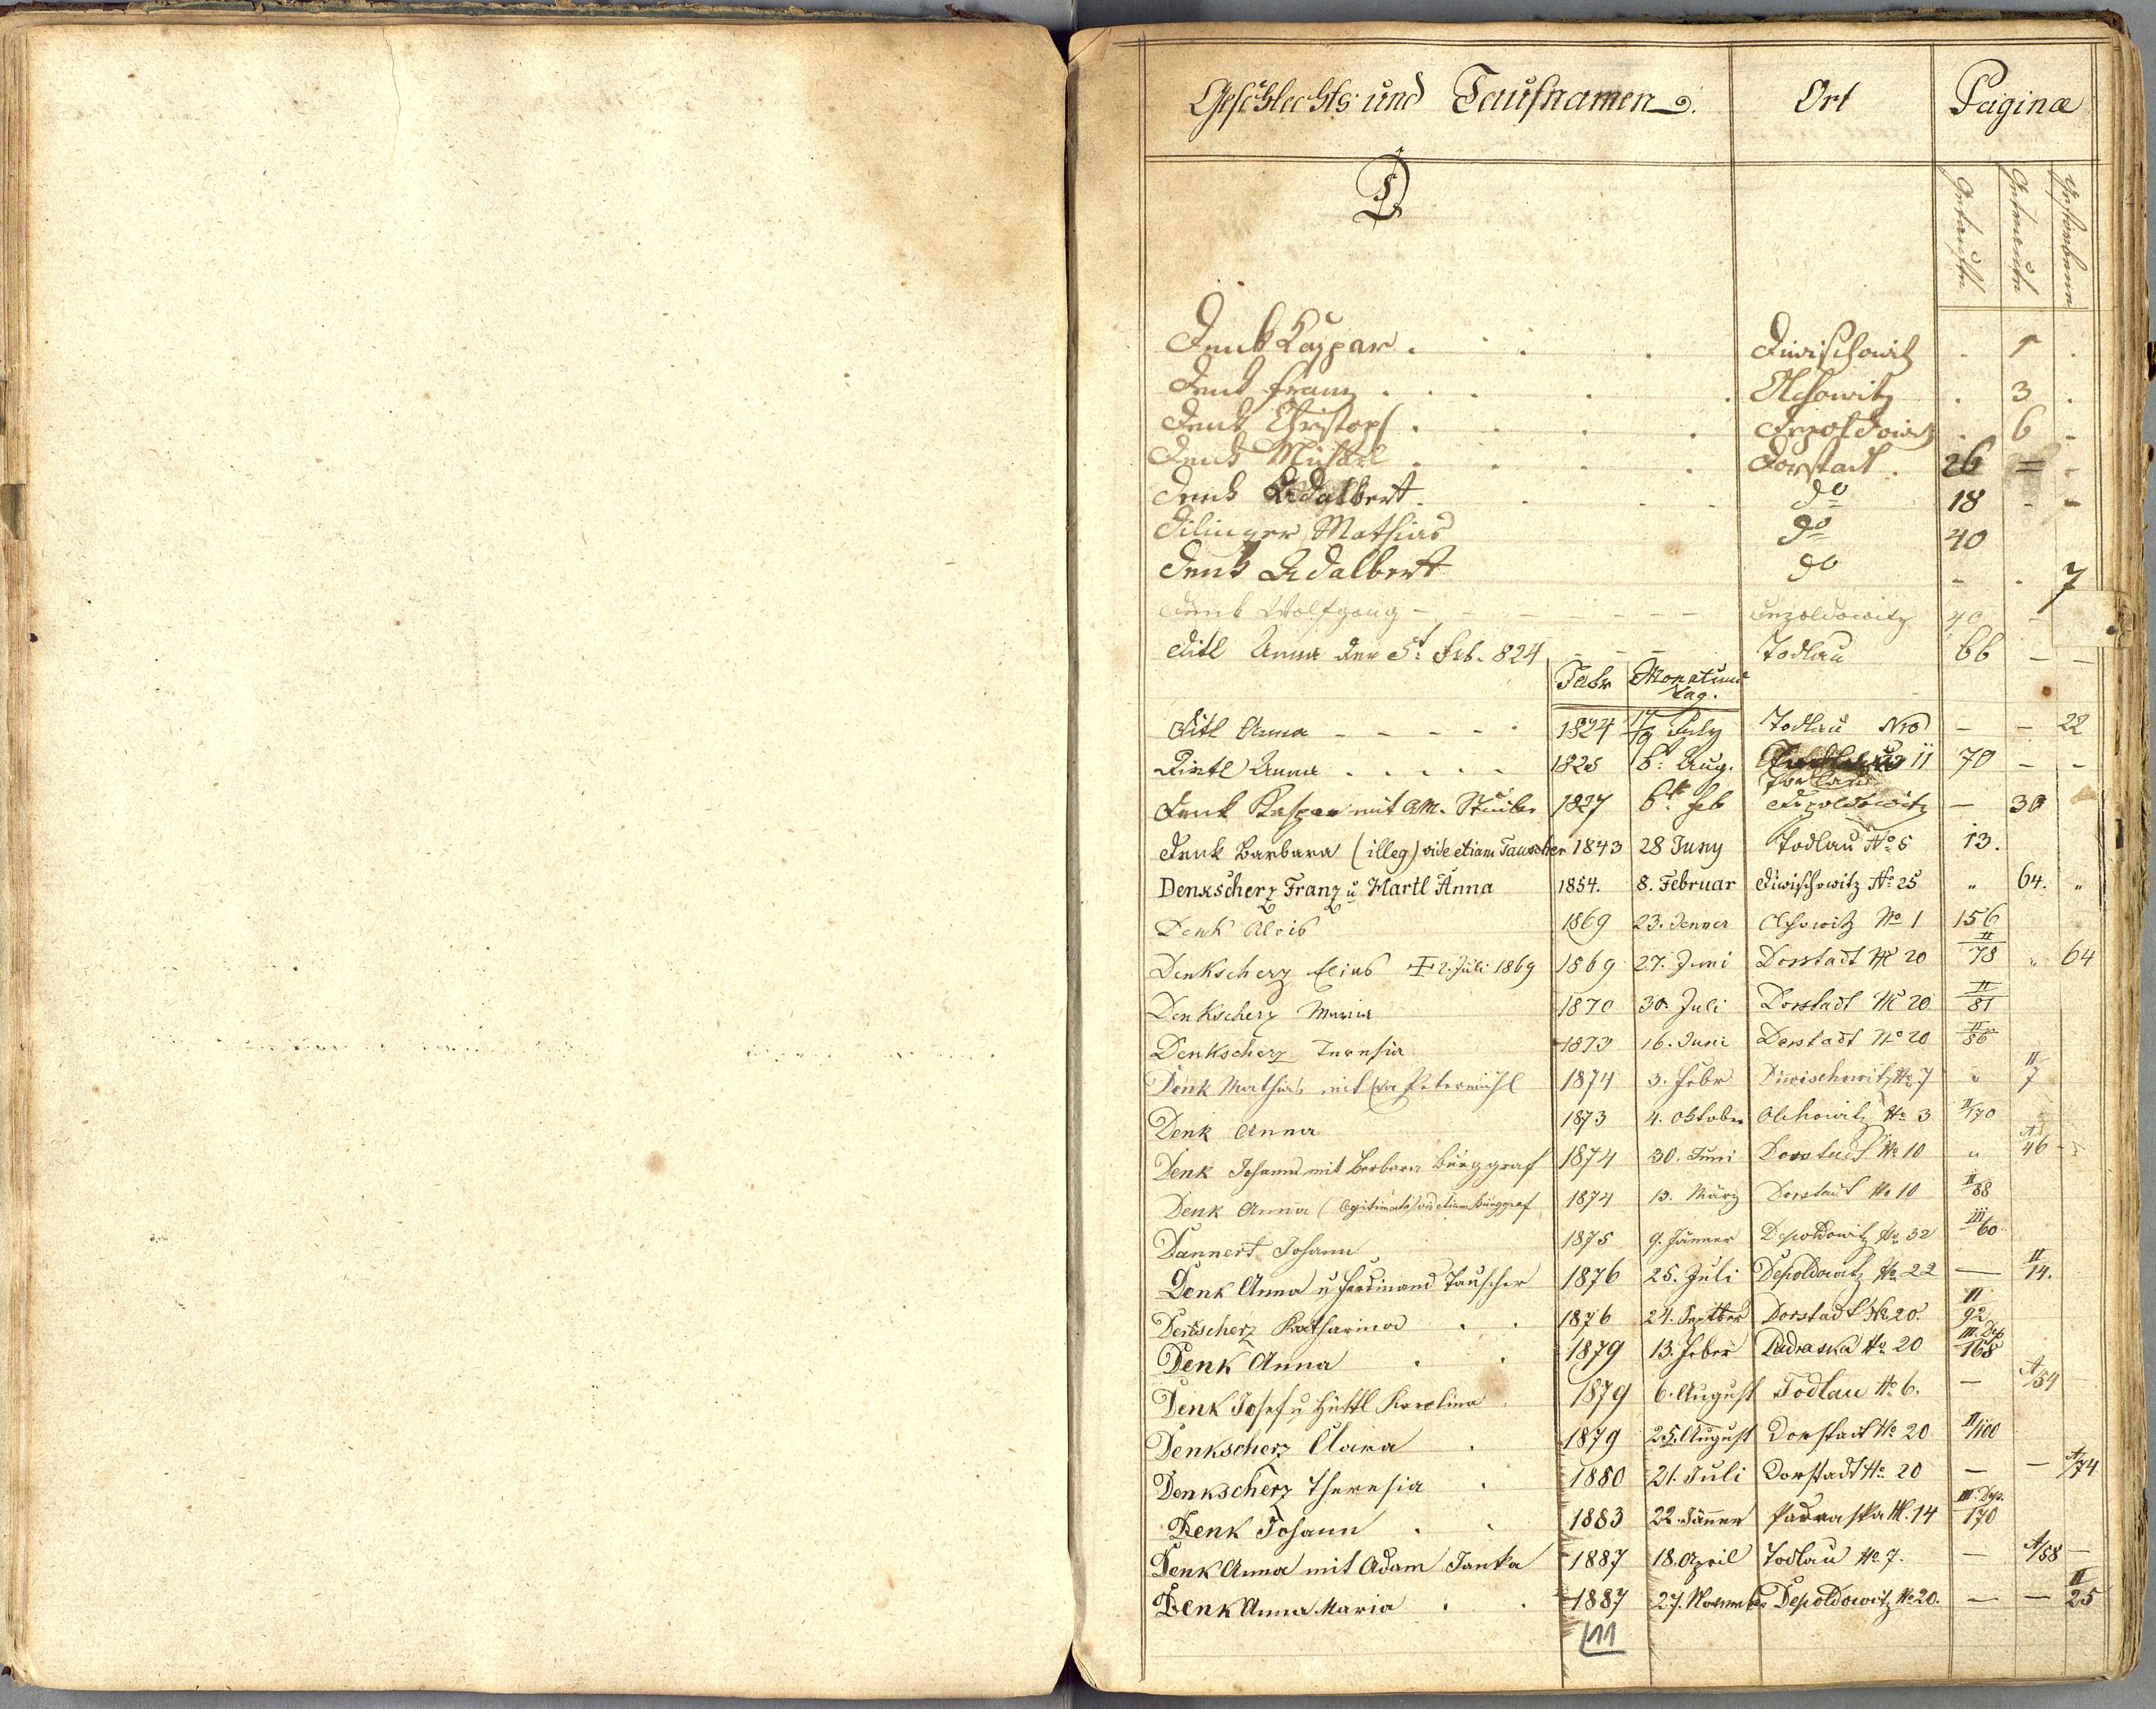 Geschlechts und Taufnamen. Ort Paginæ
D Getaufte Getraute Gestorbene
Denk Kaspar . . . . Diwischowitz . 1 .
Denk Franz . . . . . Olchowitz . 3 .
Denk Christoph . . . . Depoldowitz . 6 .
Denk Michael . . . . Dorstadt . 26 = -
Denk Adalbert . . . . do 18 - -
Dilinger Mathias do 40
Denk Adalbert do - . 7
Denk Wolfgang - - - - - - - Depoldowitz 40 -
Ditl Anna den 5t. Feb. 824 - - - Todlau 66 - -
Jahr Monat und Tag.
Ditl Anna - - - - - 1824 July Todlau Nro - - 22
Dietl Anna . . . . . 1825 6t. Aug. 11 70 - -
Todlau
Denk Kaspar mit AM. Stuiber 1827 6t. Feb Depoldowitz - 30
Denk Barbara (illeg) vide etiam Tauscher 1843 28 Juny Todlau No 5 13.
Denkscherz Franz u Hartl Anna 1854. 8. Februar Diwischowitz No 25 " 64. "
Denk Alois 1869 23. Jenner Olchowitz No 1 156
Denkscherz Elias 2. Juli 1869 1869 27. Juni Dorstadt No 20 II/78 " 64
Denkscherz Maria 1870 30. Juli Dorstadt No 20 II/81
Denkscherz Theresia 1873 16. Juni Dorstadt No 20 II/86
Denk Mathias mit Eva Petermichl 1874 3. Febr Diwischowitz No 7 " II/7
Denk Anna 1873 4. Oktober Olchowitz No 3 II/170
Denk Johann mit Barbara Burggraf 1874 30. Juni Dorstadt No 10 " A/46 -
Denk Anna (legitimata) vid etiam Burggraf 1874 13. März Dorstadt No 10 II/88
Dannert Johann 1875 9. Jänner Depoldowitz No 32 III/60
Denk Anna u Ferdinand Tauscher 1876 25. Juli Depoldowitz No 22 — II/14.
Denkscherz Katharina . . 1876 24. Septber Dorstadt No 20. II/92
Denk Anna . . 1879 13. Feber Padraska No 20 III. Dep/168
Denk Josef u Hüttl Karolina 1879 6. August Todlau No 6. — A/54 —
Denkscherz Clara . 1879 25. August Dorstadt No 20 II/100
Denkscherz Theresia . 1880 21. Juli Dorstadt No 20 — — A/74
Denk Johann . . 1883 22. Jänner Padraska No. 14 III. Dep./170
Denk Anna mit Adam Janka 1887 18. April Todlau No 7. — A/58 —
Denk Anna Maria . . 1887 27. November Depoldowitz No 20. — — II/25